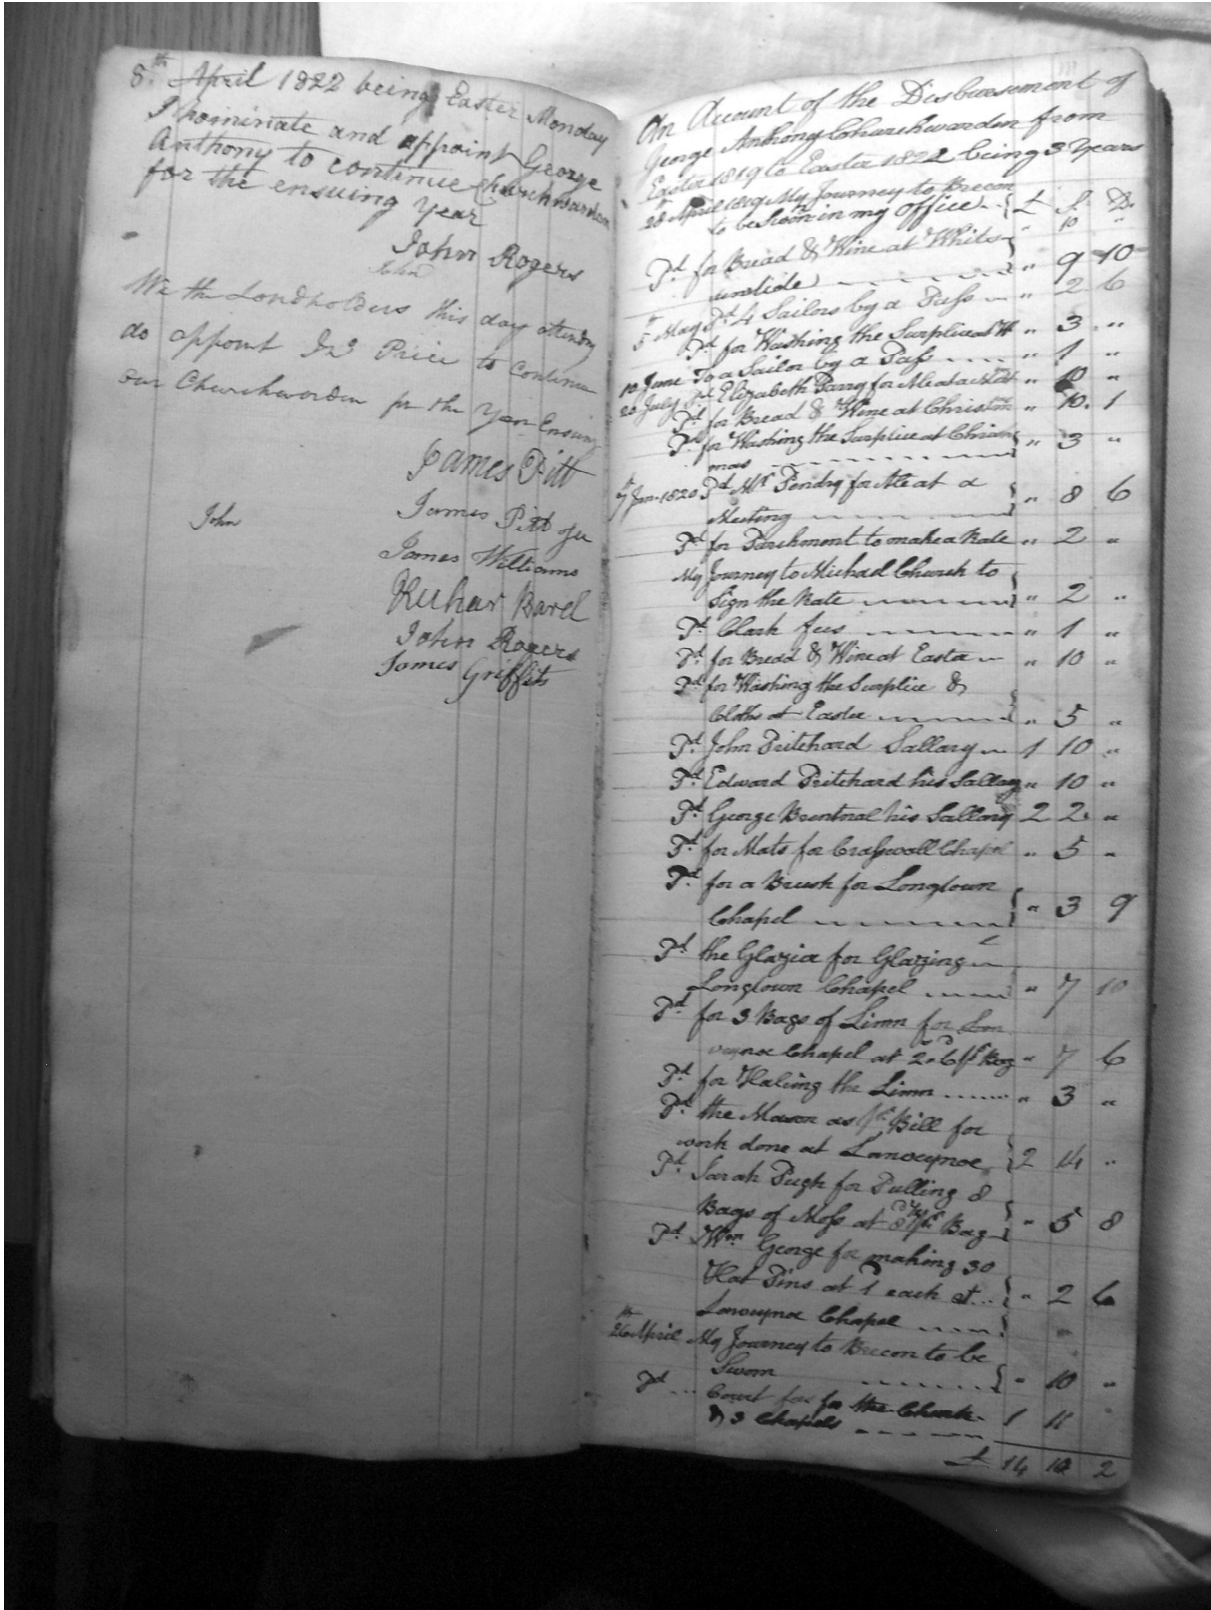 8.th April 1822 being Easter Monday
I nominate and appoint George
Anthony to continue Churchwarden
for the ensuing Year
John Rogers
John
We the Landholders this day attending
do appoint Jno Price to Continue
our Churchwarden for the Year Ensuing
James Pitt
John
James Pitt Jur
James Williams
John Rogers
James Griffits
An Account of the Disbursement of
George Anthony Churchwarden from
Easter 1819 to Easter 1822 being 3 Years
28 April 1819 My Journey to Brecon
to be Sworn in my Office £ S. D.
" 10 "
Pd for Bread & Wine at Whits
untide " 9 10
5th May Pd 4 Sailors by a Pass " 2 6
Pd for Washing the Surplice at W " 3 "
10 June To a Sailor by a Pass " 1 "
20 July Pd Elizabeth Parry for Ale at a " 10 "
Pd for Bread & Wine at Christmas " 10. 1
Pd for Washing the Surplice at Christ
mas " 3 "
7th Jan. 1820 Pd Mr Pendry for Ale at a
Meeting " 8 6
Pd for Parchment to make a Rate " 2 "
My Journey to Michael Church to
Sign the Rate " 2 "
Pd Clark fees " 1 "
Pd for Bread & Wine at Easter " 10 "
Pd for Washing the Surplice &
Cloths at Easter " 5 "
Pd John Pritchard Sallary 1 10 "
Pd Edward Pritchard his Sallary " 10 "
Pd George Brentnal his Sallary 2 2 "
Pd for Mats for Craswall Chapel " 5 "
Pd for a Brush for Longtown
Chapel " 3 9
Pd the Glazier for Glazing
Longtown Chapel " 7 10
Pd for 3 Bags of Limn for Lan
veynoe Chapel at 2s 6d pr Bag " 7 6
Pd for Haling the Limn " 3 "
Pd the Mason as pr Bill for
work done at Lanveynoe 2 14 "
Pd Sarah Pugh for Pulling 8
Bags of Moss at 8d½ pr Bag " 5 8
Pd Wm George for making 30
Hat Pins at 1 each at " 2 6
Lanveynoe Chapel
26th April My Journey to Brecon to be
Sworn " 10 "
Pd Court fees for the Church
& 3 Chapels 1 11
£ 14 12 2